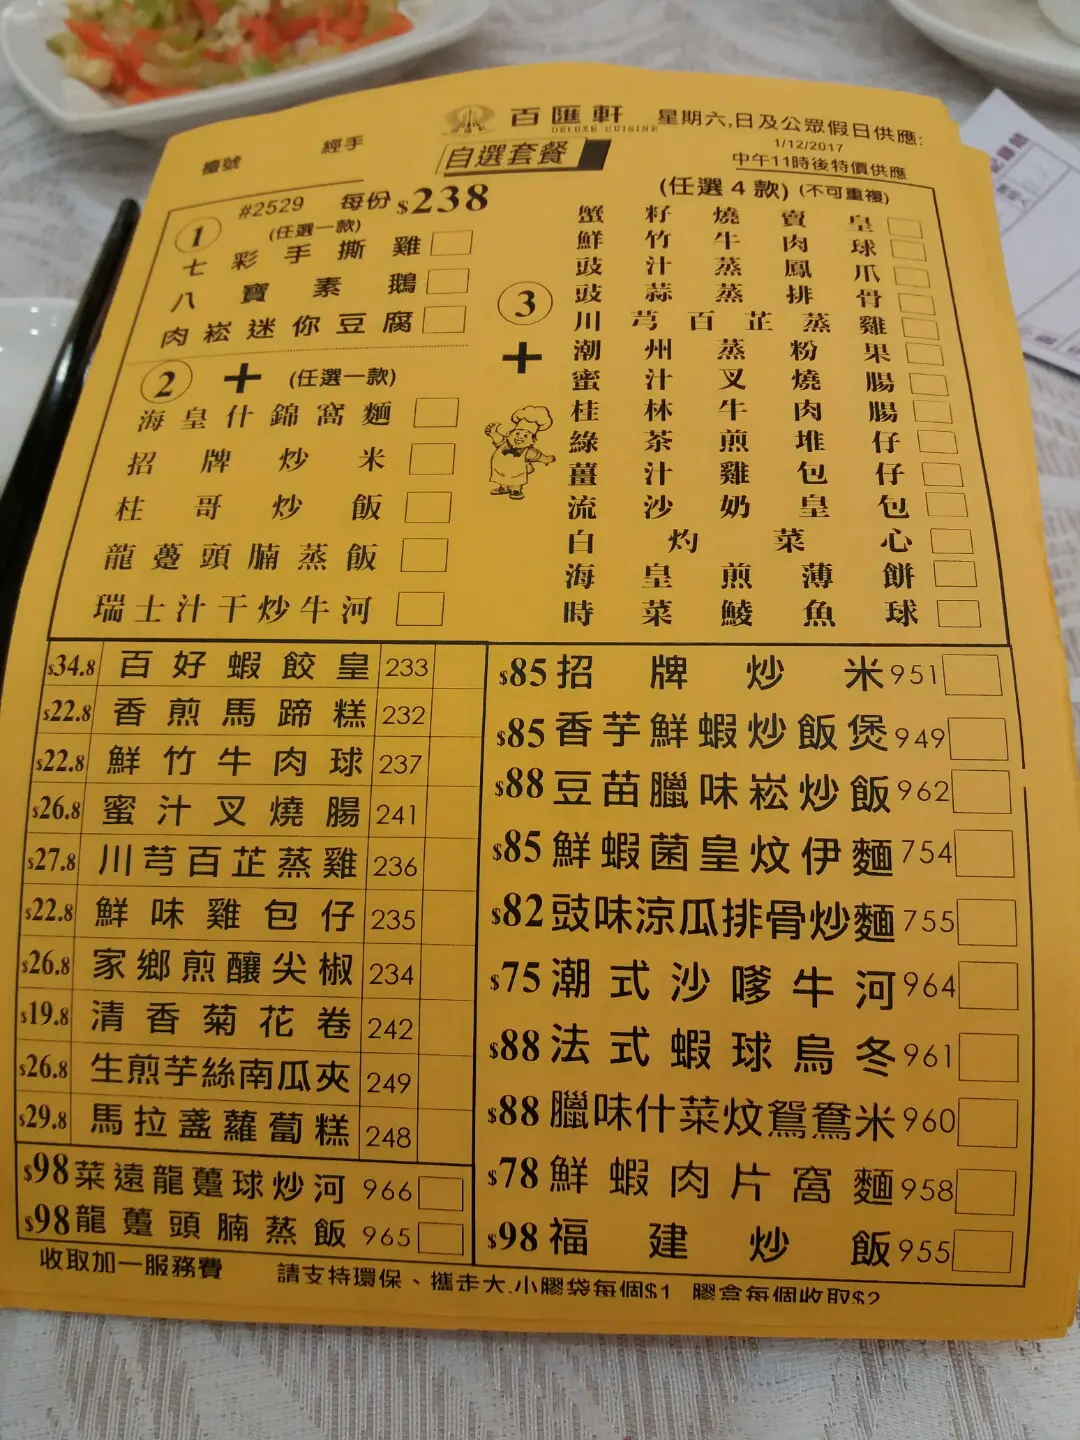 百匯軒
DELUXE CUISINE
星期六,日及公眾假日供應:
1/12/2017
中午11時後特價供應
檯號
經手
自選套餐
#2529 每份 $238
1
(任選一款)
七彩手撕雞
八寶素鵝
肉崧迷你豆腐
2 + (任選一款)
海皇什錦窩麵
招牌炒米
柱哥炒飯
龍躉頭腩蒸飯
瑞士汁干炒牛河
(任選4款) (不可重複)
3
+
蟹籽燒賣皇
鮮竹牛肉球
豉汁蒸鳳爪
豉蒜蒸排骨
川芎百芷蒸雞
潮州蒸粉果
蜜汁叉燒腸
桂林牛肉腸
綠茶煎堆仔
薑汁雞包仔
流沙奶皇包
白灼菜心
海皇煎薄餅
時菜鯪魚球
$34.8 百好蝦餃皇 233
$22.8 香煎馬蹄糕 232
$22.8 鮮竹牛肉球 237
$26.8 蜜汁叉燒腸 241
$27.8 川芎百芷蒸雞 236
$22.8 鮮味雞包仔 235
$26.8 家鄉煎釀尖椒 234
$19.8 清香菊花卷 242
$26.8 生煎芋絲南瓜夾 249
$29.8 馬拉盞蘿蔔糕 248
$98 菜遠龍躉球炒河 966
$98 龍躉頭腩蒸飯 965
$85 招牌炒米 951
$85 香芋鮮蝦炒飯煲 949
$88 豆苗臘味崧炒飯 962
$85 鮮蝦菌皇炆伊麵 754
$82 豉味涼瓜排骨炒麵 755
$75 潮式沙嗲牛河 964
$88 法式蝦球烏冬 961
$88 臘味什菜炆鴛鴦米 960
$78 鮮蝦肉片窩麵 958
$98 福建炒飯 955
收取加一服務費
請支持環保、攜走大.小膠袋每個$1 膠盒每個收取$2